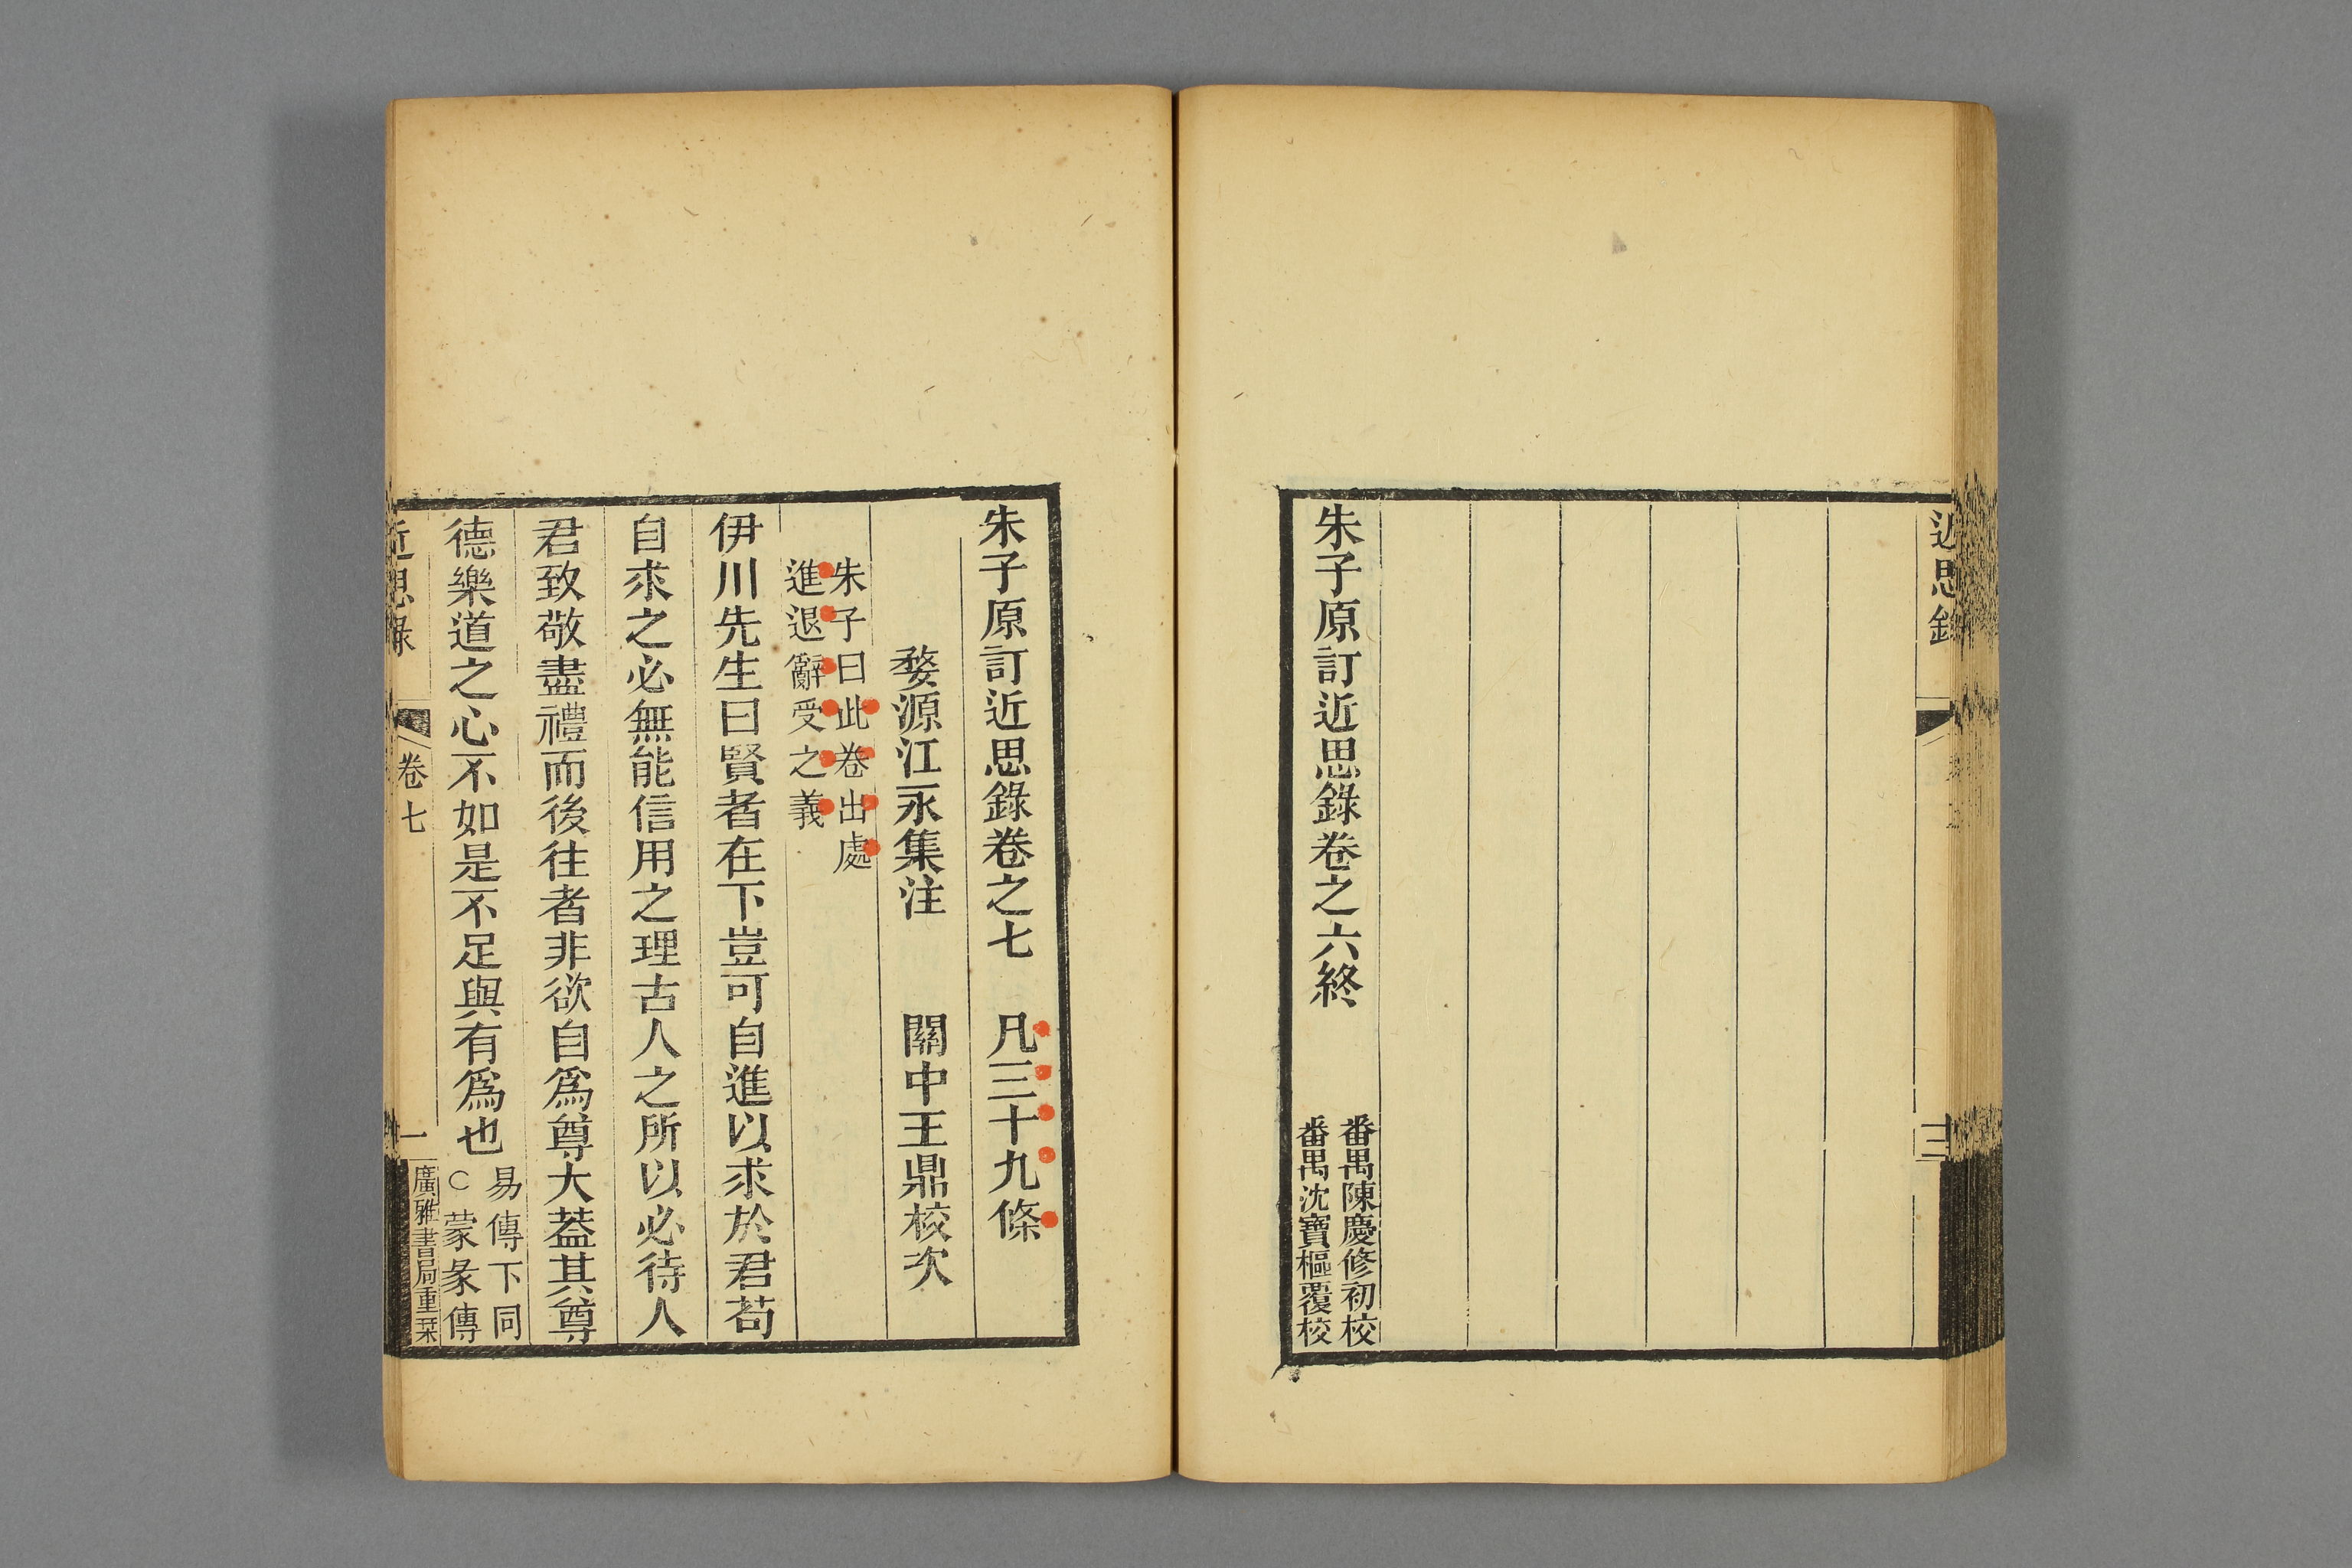 近思錄
三
朱子原訂近思錄卷之六終
番禺陳慶修初校
番禺沈寶樞覆校
朱子原訂近思錄卷之七　凡三十九條
婺源江永集注　關中王鼎校次
朱子曰此卷出處
進退辭受之義
伊川先生曰賢者在下豈可自進以求於君苟
自求之必無能信用之理古人之所以必待人
君致敬盡禮而後往者非欲自爲尊大葢其尊
德樂道之心不如是不足與有爲也
易傳下同
○蒙彖傳
近思錄
卷七
一
廣雅書局重栞